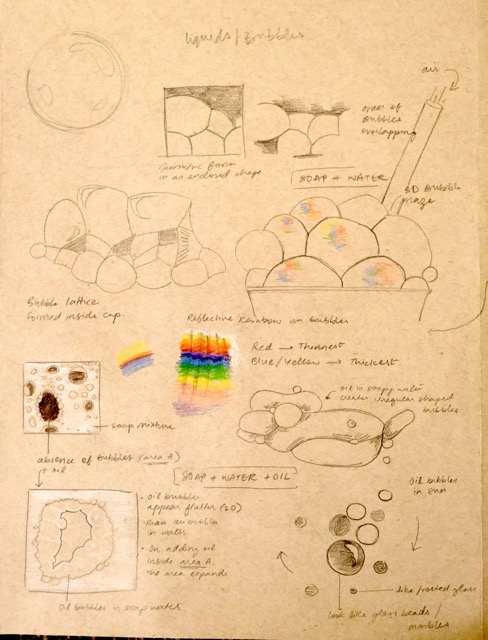 Liquids / Bubbles
air
order of
Bubbles
overlapping
Geometric form
in an enclosed shape
SOAP + WATER
3D Bubble
maze
Bubble lattice
formed inside cup.
Reflective Rainbow on bubbles
Red → Thinnest
Blue/Yellow → Thickest
oil in soapy water
creates irregular shaped
bubbles
soap mixture
absence of bubbles (area A)
+ oil
SOAP + WATER + OIL
Oil bubbles
in
• Oil bubbles
appear flatter (2D)
than air bubbles
in water
• On adding oil
inside area A
the area expands
like frosted glass
Oil bubbles in soap water
look like glass beads /
marbles